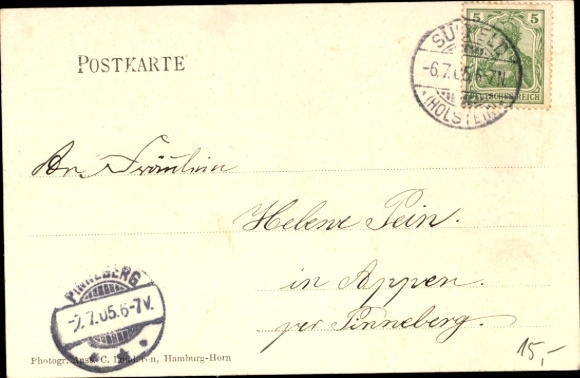 POSTKARTE
5 5
DEUTSCHES REICH
SÜLFELD
-6.7.05.6-7N.
(HOLSTEIN)
An Fräulein
Helene Pein.
in Appen.
per Pinneberg.
PINNEBERG
-7.7.05.6-7V.
Photogr. C. Hamburg-Horn
15,-